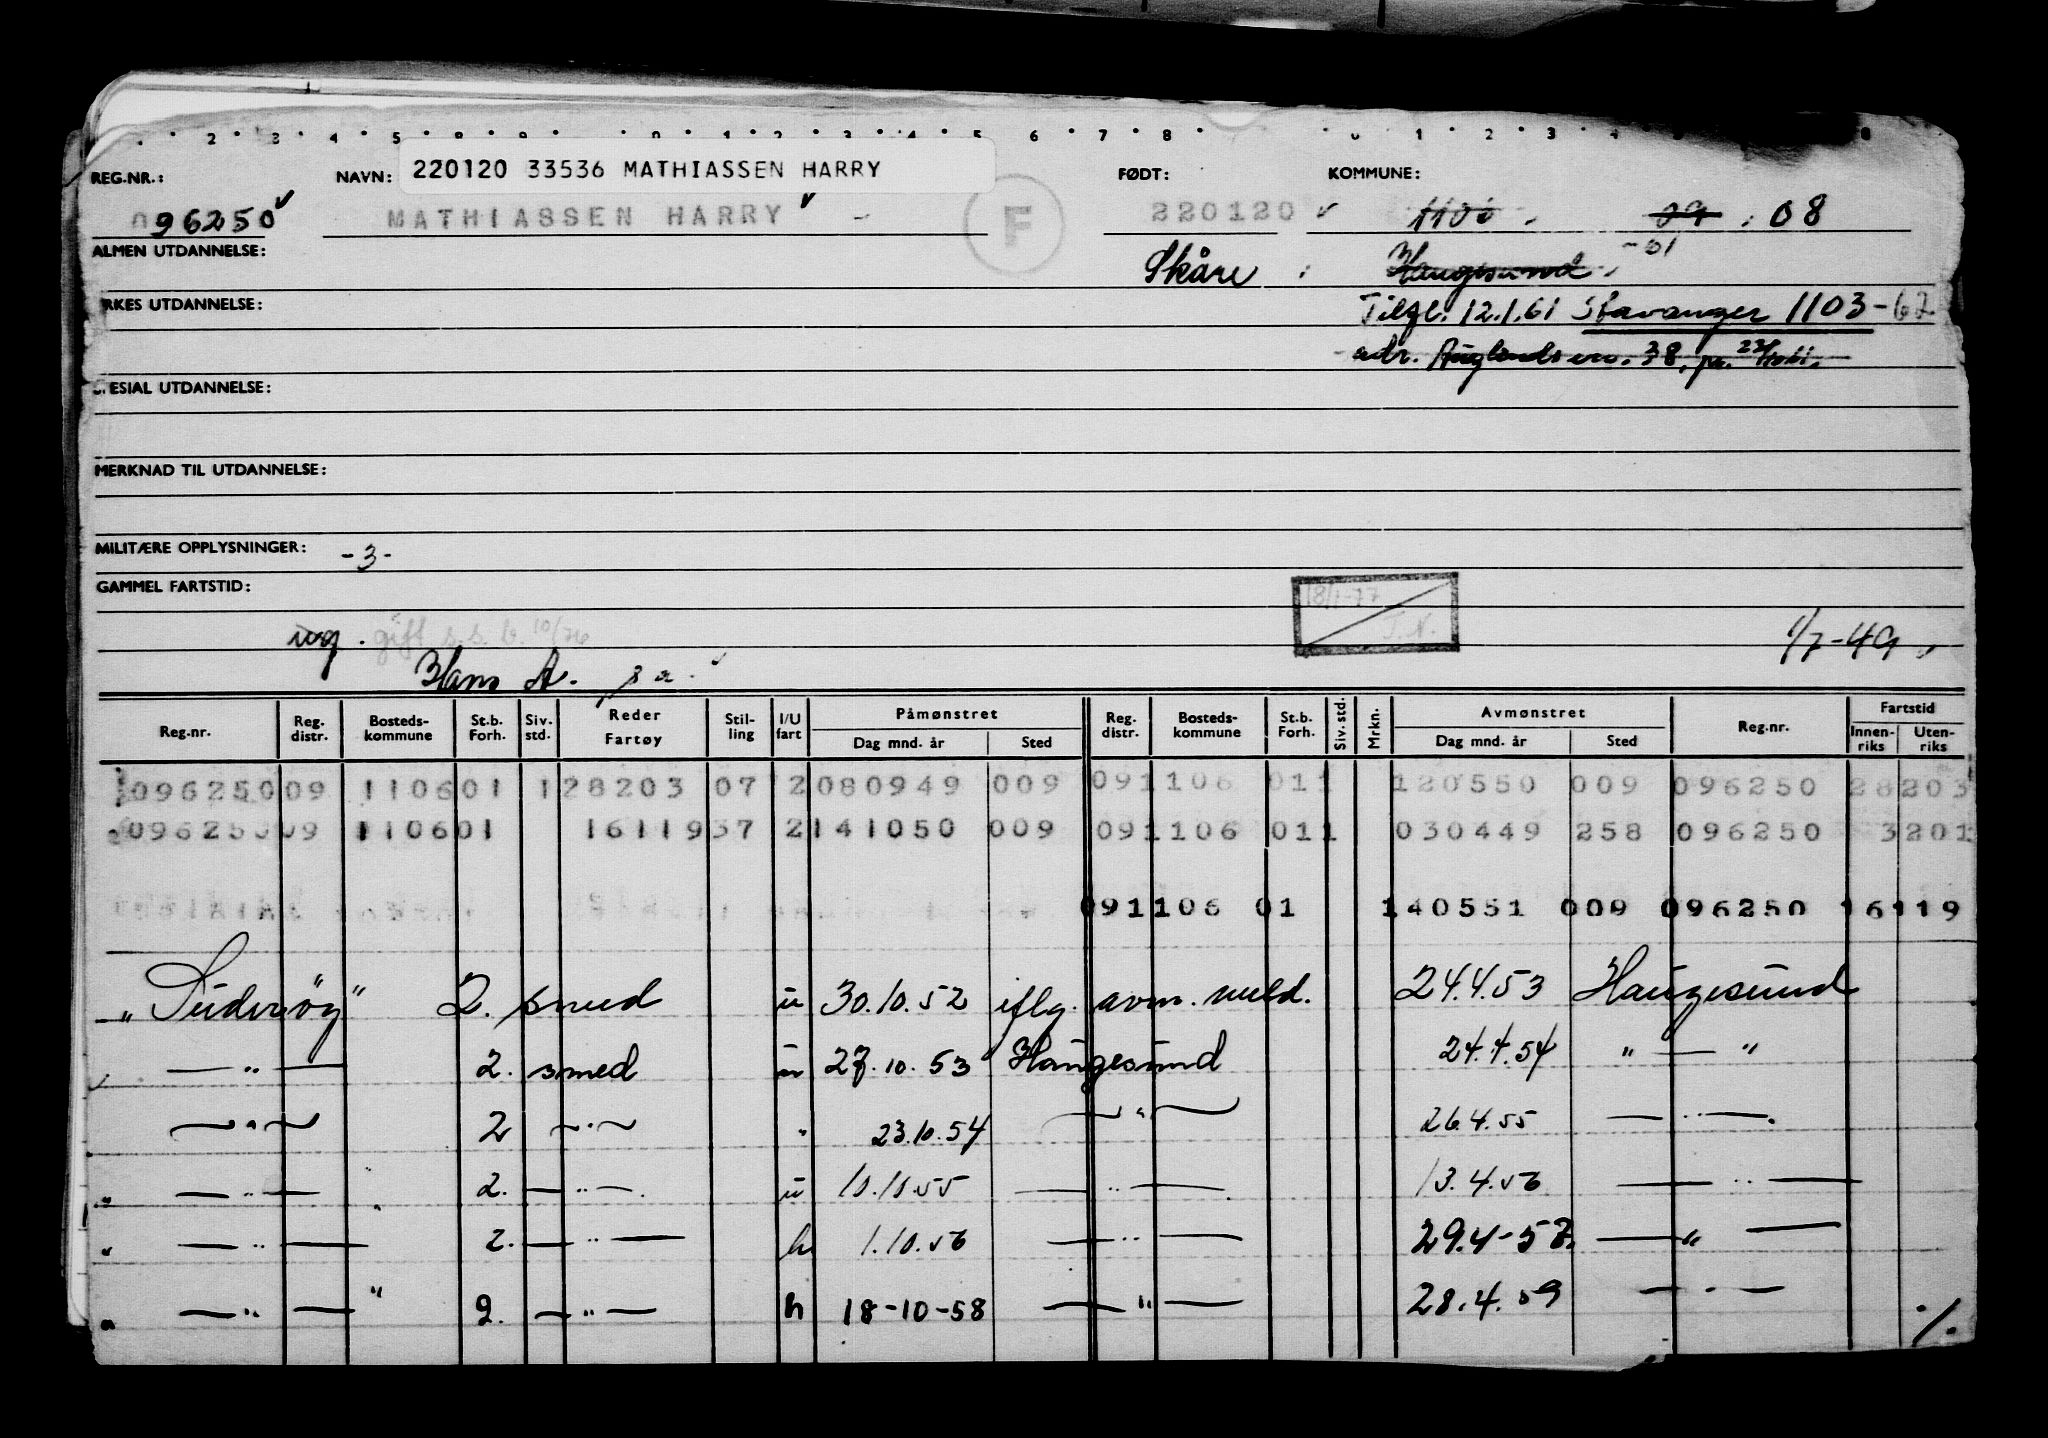 REG.NR.: NAVN: 220120 33536 MATHIASSEN HARRY FØDT: KOMMUNE:
096250 MATHIASSEN HARRY F 220120 08
ALMEN UTDANNELSE: Skåre Haugesund -51
RKES UTDANNELSE: Tilfl. 12.1.61 Stavanger 1103-62
adr. 38,
ESIAL UTDANNELSE:
MERKNAD TIL UTDANNELSE:
MILITÆRE OPPLYSNINGER: -3-
GAMMEL FARTSTID: 18/1-77
ug. gift s.s.b. 10/76 1/7-49
Hans A.
Reg.nr. Reg. distr. Bosteds-kommune St.b. Forh. Siv. std. Reder Fartøy Stil-ling I/U fart Påmønstret Dag mnd. år Sted Reg. distr. Bosteds-kommune St.b. Forh. Siv. std. Mrkn. Avmønstret Dag mnd. år Sted Reg.nr. Fartstid Innen-riks Uten-riks
096250 09 1106 01 1 28203 07 2 080949 009 09 1106 01 1 120550 009 096250 28203
096250 09 1106 01 16119 37 2 141050 009 09 1106 01 1 030449 258 096250 3201
09 1106 01 140551 009 096250 16119
"Suderöy" 2. smed u 30.10.52 iflg. avm. meld. 24.4.53 Haugesund
— " — 2. smed u 27.10.53 Haugesund 24.4.54 " — "
— " — 2 — " — " 23.10.54 — " — 26.4.55 — " —
— " — 2. — " — u 10.10.55 — " — 13.4.56 — " —
— " — 2. — " — h 1.10.56 — " — 29.4-57. — " —
— " — 2. — " — h 18-10-58 — " — 28.4.59 — " — ./.